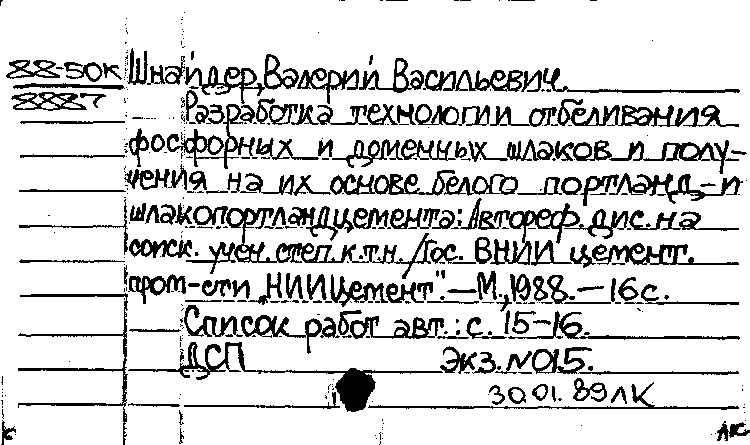 88-50К Шнайдер, Валерий Васильевич.
8887 Разработка технологии отбеливания
фосфорных и доменных шлаков и полу-
чения на их основе белого портланд-и
шлакопортландцемента: Автореф. дис. на
соиск. учен. степ. к.т.н. /Гос. ВНИИ цемент.
пром-сти „НИИЦемент".—М., 1988.—16 с.
Список работ авт.: с. 15-16.
ДСП Экз. №015.
30.01.89 ЛК